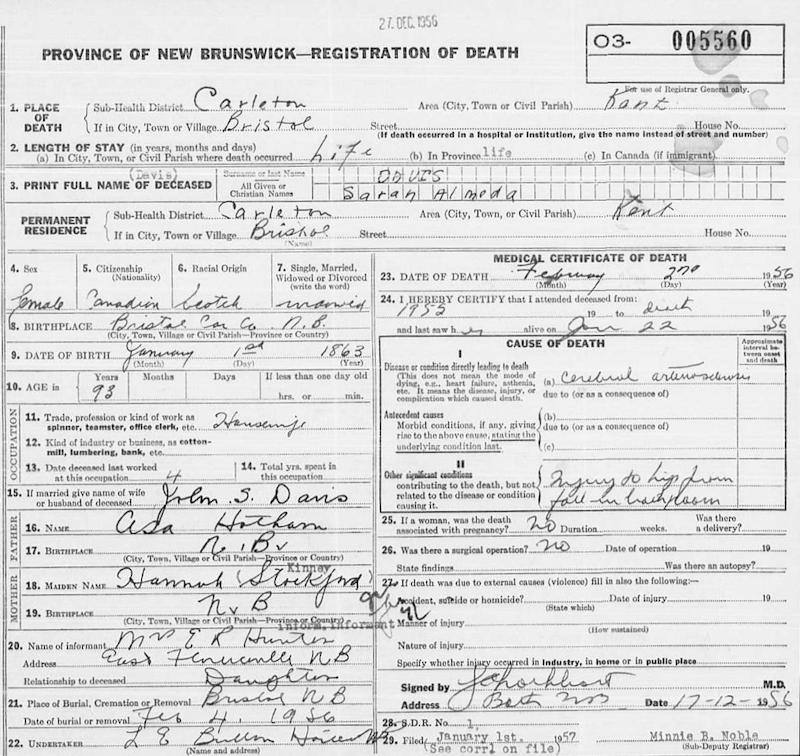 27. DEC. 1956
PROVINCE OF NEW BRUNSWICK—REGISTRATION OF DEATH
O3- 005560
For use of Registrar General only.
1. PLACE OF DEATH
Sub-Health District Carleton Area (City, Town or Civil Parish) Kent
If in City, Town or Village Bristol Street House No.
(If death occurred in a hospital or Institution, give the name instead of street and number)
2. LENGTH OF STAY (in years, months and days)
(a) In City, Town, or Civil Parish where death occurred Life (b) In Province life (c) In Canada (if immigrant)
(Davis)
3. PRINT FULL NAME OF DECEASED
Surname or Last Name DAVIS
All Given or Christian Names Sarah Almeda
PERMANENT RESIDENCE
Sub-Health District Carleton Area (City, Town or Civil Parish) Kent
If in City, Town or Village Bristol Street House No.
(Name)
4. Sex 5. Citizenship (Nationality) 6. Racial Origin 7. Single, Married, Widowed or Divorced (write the word)
female Canadian Scotch
8. BIRTHPLACE Bristol Car Co. N.B.
(City, Town, Village or Civil Parish—Province or Country)
9. DATE OF BIRTH January 1st 1863
(Month) (Day) (Year)
10. AGE in Years Months Days If less than one day old
93 hrs. or min.
OCCUPATION
11. Trade, profession or kind of work as spinner, teamster, office clerk, etc. Housewife
12. Kind of industry or business, as cotton-mill, lumbering, bank, etc.
13. Date deceased last worked at this occupation 4 14. Total yrs. spent in this occupation
15. If married give name of wife or husband of deceased John S. Davis
FATHER
16. NAME Asa Hotham
17. BIRTHPLACE N.B.
(City, Town, Village or Civil Parish—Province or Country)
MOTHER
Kinney
18. MAIDEN NAME Hannah (Stockford)
19. BIRTHPLACE N.B
(City, Town, Village or Civil Parish—Province or Country)
inform. Informant
20. Name of informant Mrs E R Hunter
Address East Florenceville NB
Relationship to deceased Daughter
21. Place of Burial, Cremation or Removal Bristol NB
Date of burial or removal Feb 4. 1956
22. UNDERTAKER L E
(Name and address)
MEDICAL CERTIFICATE OF DEATH
23. DATE OF DEATH February 2nd 1956
(Month) (Day) (Year)
24. I HEREBY CERTIFY that I attended deceased from:
1952 19 to death
and last saw her alive on Jan 22 1956
CAUSE OF DEATH
Approximate interval between onset and death
I
Disease or condition directly leading to death
(This does not mean the mode of dying, e.g., heart failure, asthenia, etc. It means the disease, injury, or complication which caused death.
(a) cerebral arteriosclerosis
due to (or as a consequence of)
Antecedent causes
Morbid conditions, if any, giving rise to the above cause, stating the underlying condition last.
(b)
due to (or as a consequence of)
(c)
II
Other significant conditions
contributing to the death, but not related to the disease or condition causing it.
Injury to hip from
fall in bathroom
25. If a woman, was the death associated with pregnancy? NO Duration weeks. Was there a delivery?
26. Was there a surgical operation? NO Date of operation 19
State findings Was there an autopsy?
27. If death was due to external causes (violence) fill in also the following:—
Accident, suicide or homicide? Date of injury 19
(State which)
Manner of injury
(How sustained)
Nature of injury
Specify whether injury occurred in industry, in home or in public place
Signed by M.D.
Address Bath NB Date 17-12-1956
28. S.D.R. No 1.
29. Filed January 1st. 1957 Minnie B. Noble
(See corr1 on file) (Sub-Deputy Registrar)